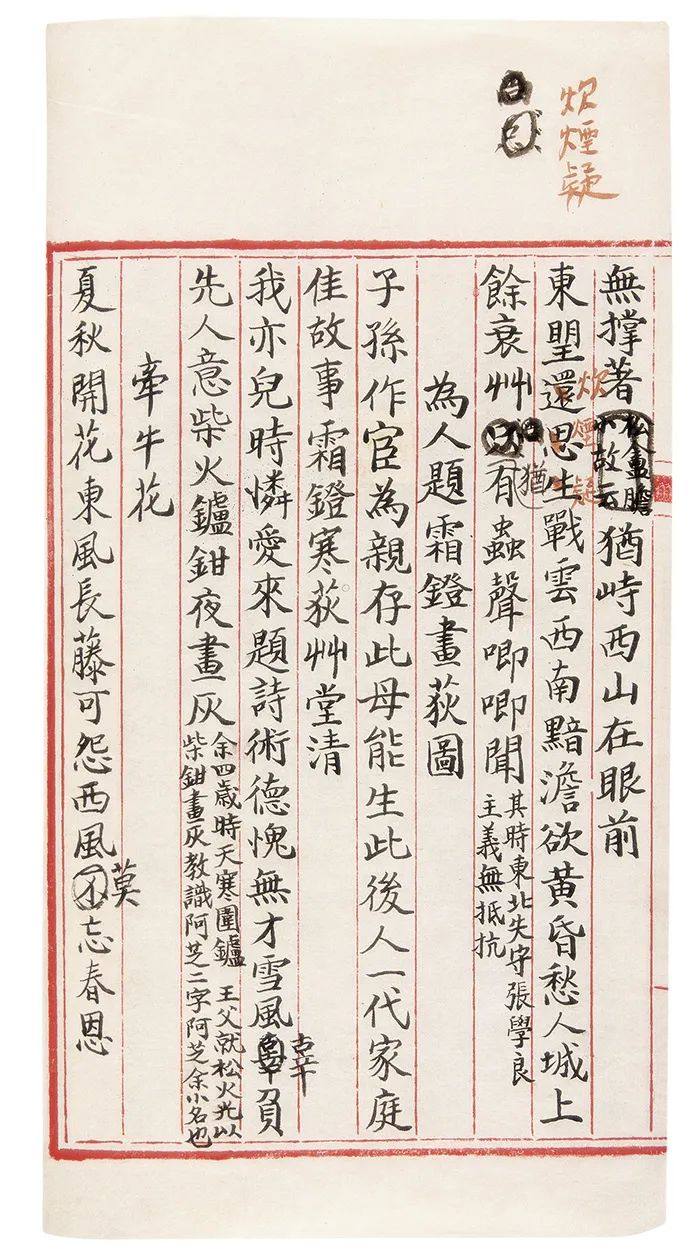 炊煙疑
無撐著猶峙西山在眼前
炊煙疑
東朢還思生戰雲西南黯澹欲黃昏愁人城上
餘衰艸猶有蟲聲唧唧聞
其時東北失守張學良
主義無抵抗
為人題霜鐙畫荻圖
子孫作官為親存此母能生此後人一代家庭
佳故事霜鐙寒荻艸堂清
我亦兒時憐愛來題詩術德愧無才雪風辜負
先人意柴火鑪鉗夜畫灰
余四歲時天寒圍鑪 王父就松火光以
柴鉗畫灰教識阿芝二字阿芝余小名也
牽牛花
夏秋開花東風長藤可怨西風莫忘春恩